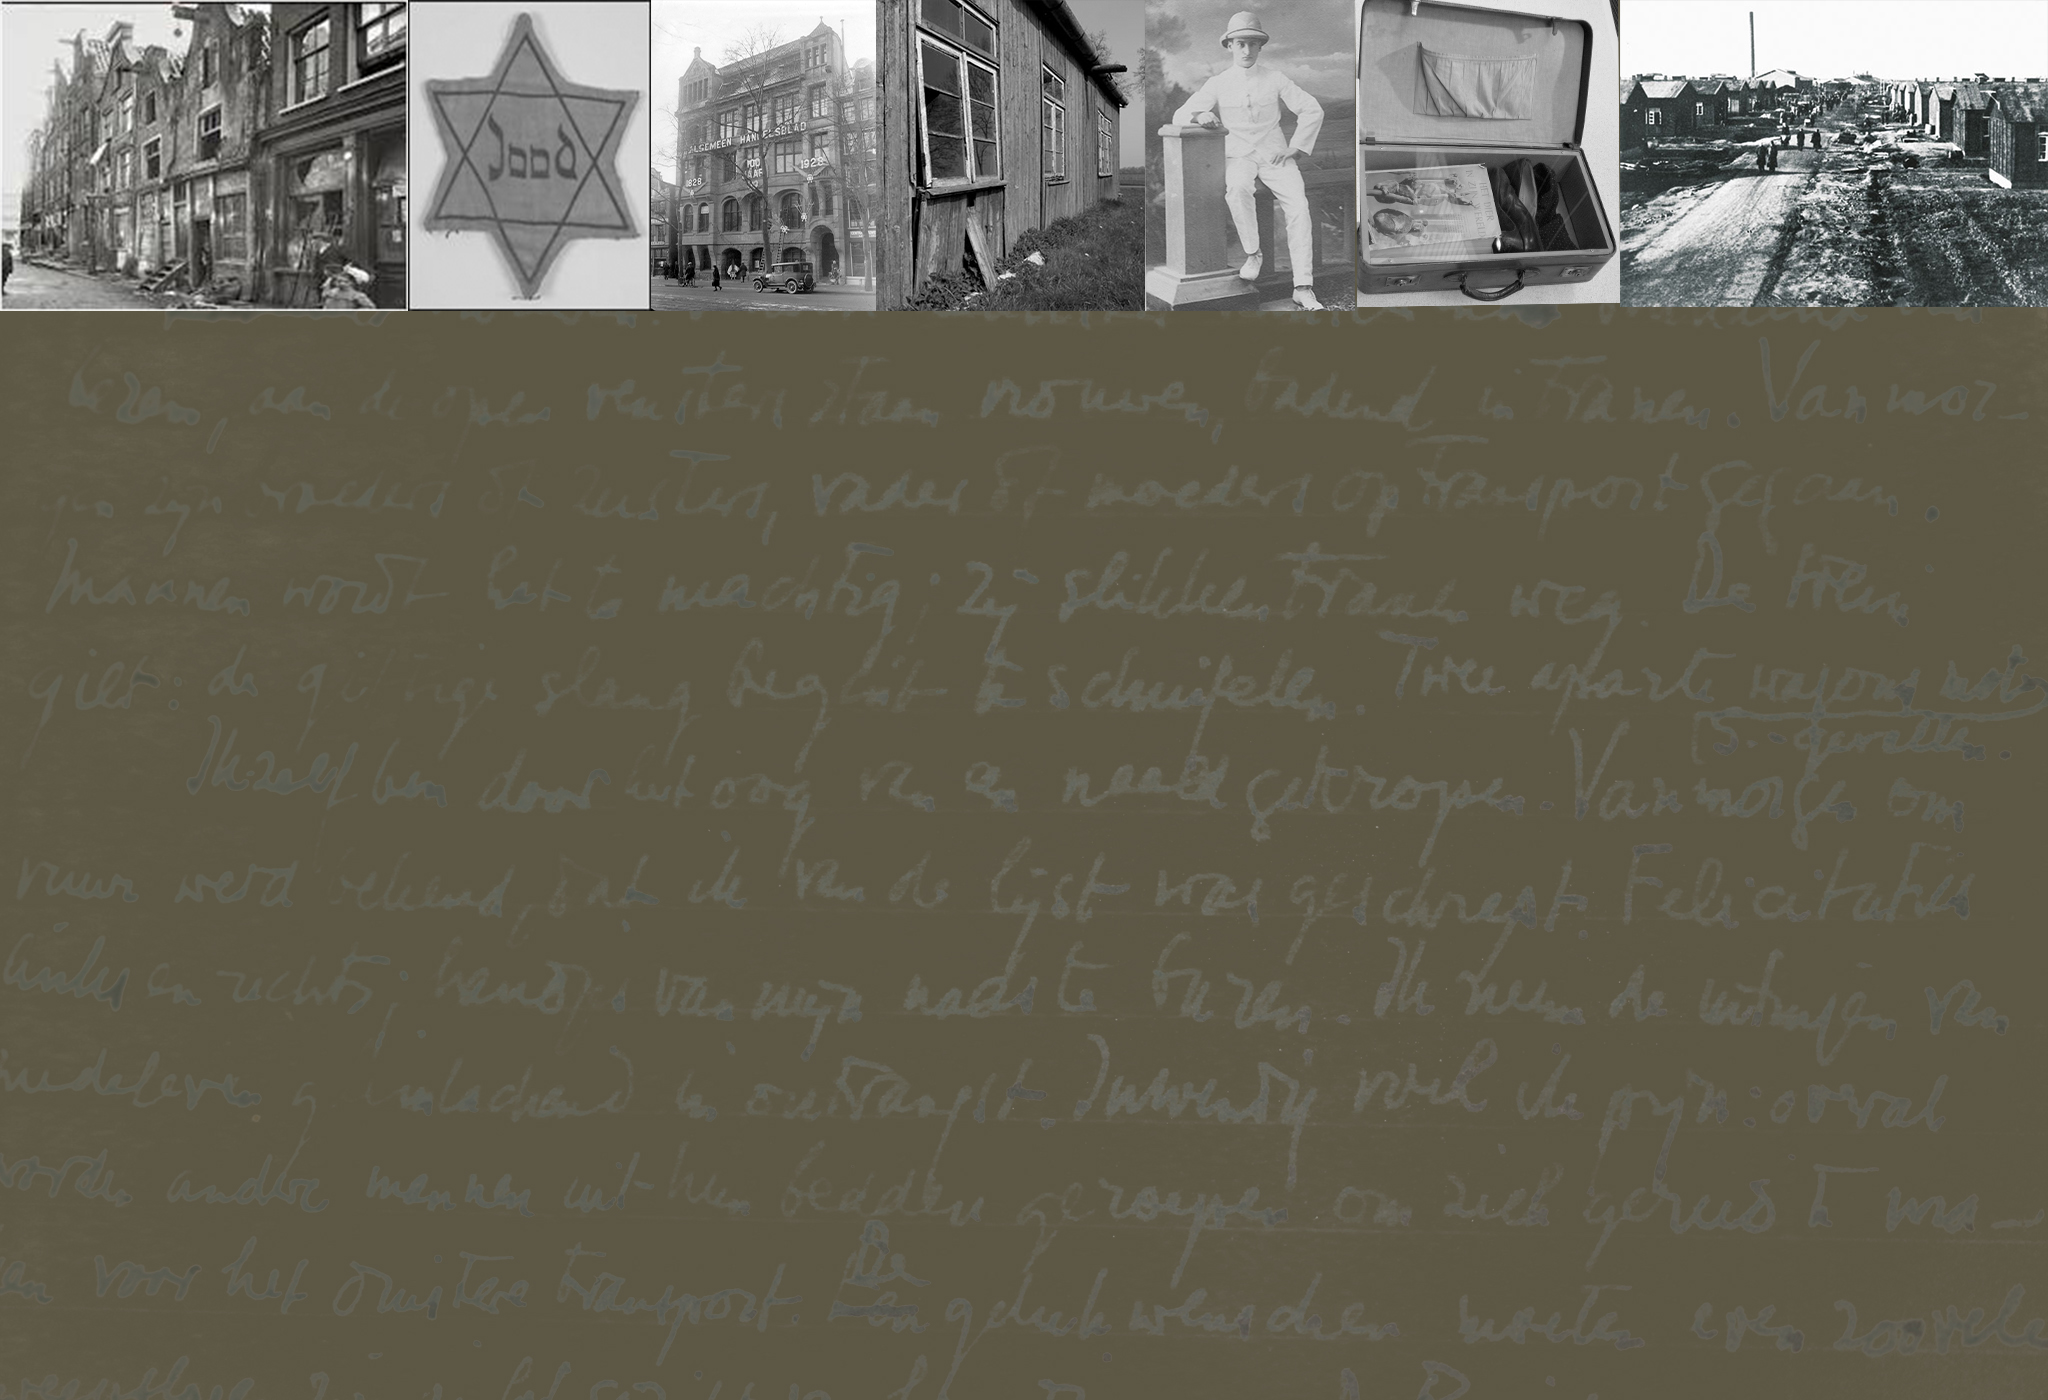 Jood
ALGEMEEN HANDELSBLAD
100
JAAR
1828
1928
lezen, aan de open vensters staan vrouwen, badend in tranen. Vanmor-
gen zijn broeders of zusters, vader of moeders op transport gegaan.
Mannen wordt het te machtig; zij slikken tranen weg. De trein
gilt: de giftige slang begint te schuifelen. Twee aparte wagons met
S.-gevallen.
Ikzelf ben door het oog van en naald gekropen. Vanmorgen om
vuur werd bekend, dat ik van de lijst was geschrapt. Felicitaties
links en rechts; handjes van mijn naaste buren. Ik neem de uitingen van
medeleven glimlachend in ontvangst. Inwendig voel ik pijn: overal
worden andere mannen uit hun bedden geroepen om zich gereed te ma-
ken voor het duistere transport. De
gelukwenschen moeten even zoovele